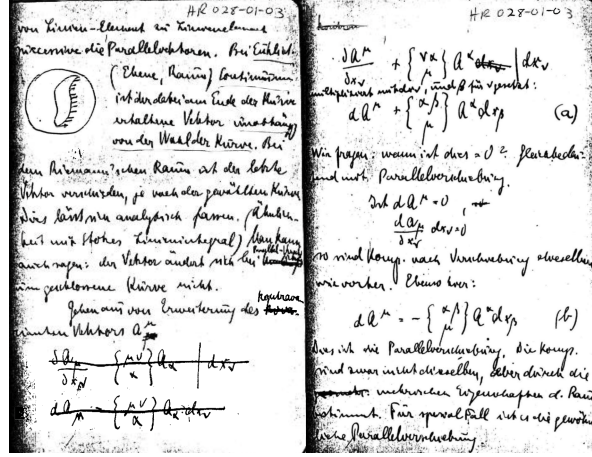 HR 028-01-03
von Linien-Element zu Linienelement
successive die Parallelvektoren. Bei Euklid.
(Ebene, Raum) Continuum
ist der dabei am Ende der Kurve
erhaltene Vektor unabhäng
von der Wahl der Kurve. Bei
dem Riemann'schen Raum ist der letzte
Vektor verschieden, je nach der gewählten Kurve
Dies lässt sich analytisch fassen. (Ähnlich-
keit mit Stokes Linienintegral) Man kann
auch sagen: der Vektor ändert sich bei
um geschlossene Kurve nicht.
Gehen aus von Erweiterung des kontrava-
rianten Vektors A^μ
∂A_μ/∂x_ν {μν α} A_α | dx_ν
dA_μ = {μν α} A_α dx_ν
HR 028-01-03
∂A^μ/∂x_ν + {να μ} A^α | dx_ν
multipliziert mit dx_ν, und β für ν gesetzt:
dA^μ + {αβ μ} A^α dx_β (a)
Wir fragen: wann ist dies = 0? Gleichbedeu-
tend mit Parallelverschiebung.
Ist dA^μ = 0,
∂A^μ/∂x_ν dx_ν = 0
so sind Komp. nach Verschiebung dieselben
wie vorher. Ebenso hier:
dA^μ = -{αβ μ} A^α dx_β (b)
Dies ist die Parallelverschiebung. Die Komp.
sind zwar nicht dieselben, aber durch die
metrischen Eigenschaften d. Rau
bestimmt. Für spezialfall ist es die gewöhn
liche Parallelverschiebung